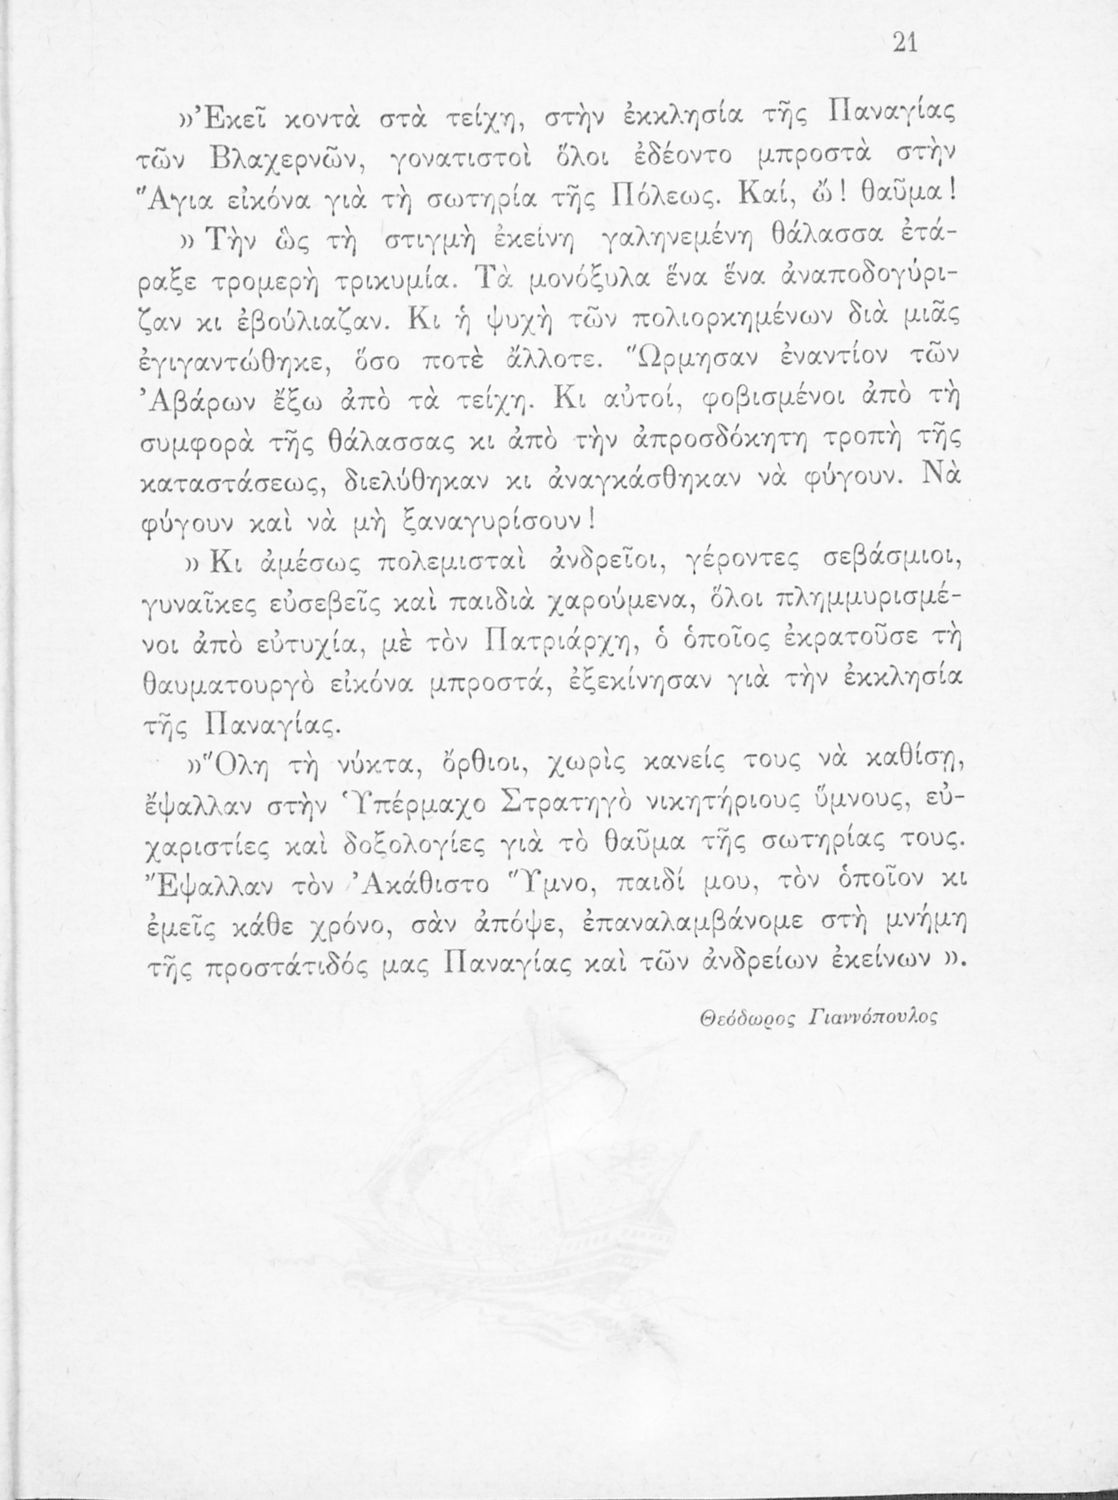 21
»Ἐκεῖ κοντὰ στὰ τείχη, στὴν ἐκκλησία τῆς Παναγίας
τῶν Βλαχερνῶν, γονατιστοὶ ὅλοι ἐδέοντο μπροστὰ στὴν
Ἅγια εἰκόνα γιὰ τὴ σωτηρία τῆς Πόλεως. Καί, ὤ! θαῦμα!
» Τὴν ὣς τὴ στιγμὴ ἐκείνη γαληνεμένη θάλασσα ἐτά-
ραξε τρομερὴ τρικυμία. Τὰ μονόξυλα ἕνα ἕνα ἀναποδογύρι-
ζαν κι ἐβούλιαζαν. Κι ἡ ψυχὴ τῶν πολιορκημένων διὰ μιᾶς
ἐγιγαντώθηκε, ὅσο ποτὲ ἄλλοτε. Ὥρμησαν ἐναντίον τῶν
Ἀβάρων ἔξω ἀπὸ τὰ τείχη. Κι αὐτοί, φοβισμένοι ἀπὸ τὴ
συμφορὰ τῆς θάλασσας κι ἀπὸ τὴν ἀπροσδόκητη τροπὴ τῆς
καταστάσεως, διελύθηκαν κι ἀναγκάσθηκαν νὰ φύγουν. Νὰ
φύγουν καὶ νὰ μὴ ξαναγυρίσουν!
» Κι ἀμέσως πολεμισταὶ ἀνδρεῖοι, γέροντες σεβάσμιοι,
γυναῖκες εὐσεβεῖς καὶ παιδιὰ χαρούμενα, ὅλοι πλημμυρισμέ-
νοι ἀπὸ εὐτυχία, μὲ τὸν Πατριάρχη, ὁ ὁποῖος ἐκρατοῦσε τὴ
θαυματουργὸ εἰκόνα μπροστά, ἐξεκίνησαν γιὰ τὴν ἐκκλησία
τῆς Παναγίας.
»Ὅλη τὴ νύκτα, ὄρθιοι, χωρὶς κανείς τους νὰ καθίσῃ,
ἔψαλλαν στὴν Ὑπέρμαχο Στρατηγὸ νικητήριους ὕμνους, εὐ-
χαριστίες καὶ δοξολογίες γιὰ τὸ θαῦμα τῆς σωτηρίας τους.
Ἔψαλλαν τὸν Ἀκάθιστο Ὕμνο, παιδί μου, τὸν ὁποῖον κι
ἐμεῖς κάθε χρόνο, σὰν ἀπόψε, ἐπαναλαμβάνομε στὴ μνήμη
τῆς προστάτιδός μας Παναγίας καὶ τῶν ἀνδρείων ἐκείνων ».
Θεόδωρος Γιαννόπουλος